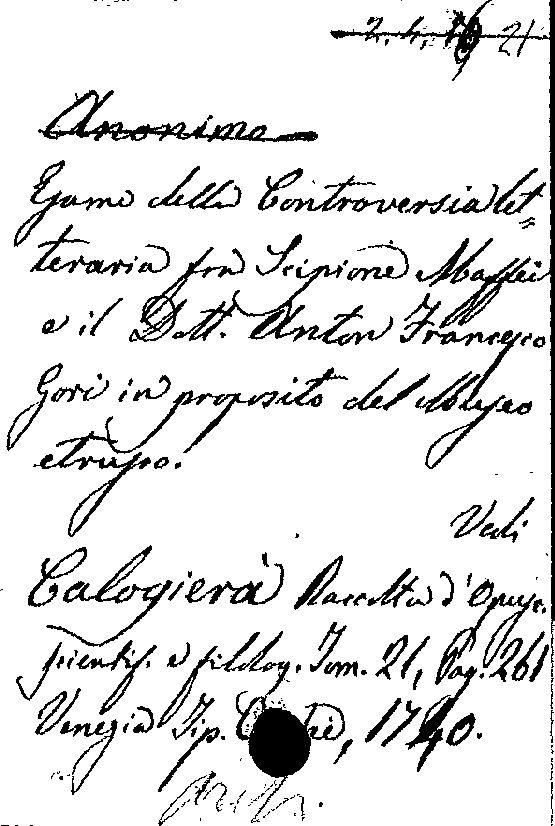 2. 4. 21
Anonimo
Esame della Controversia let=
teraria fra Scipione Maffei
e il Dott. Anton Francesco
Gori in proposito del Museo
etrusco.
Vedi
Calogierà Raccolta d'Opusc.
scientif. e filolog. Tom. 21, Pag. 261
Venezia Tip. 1740.